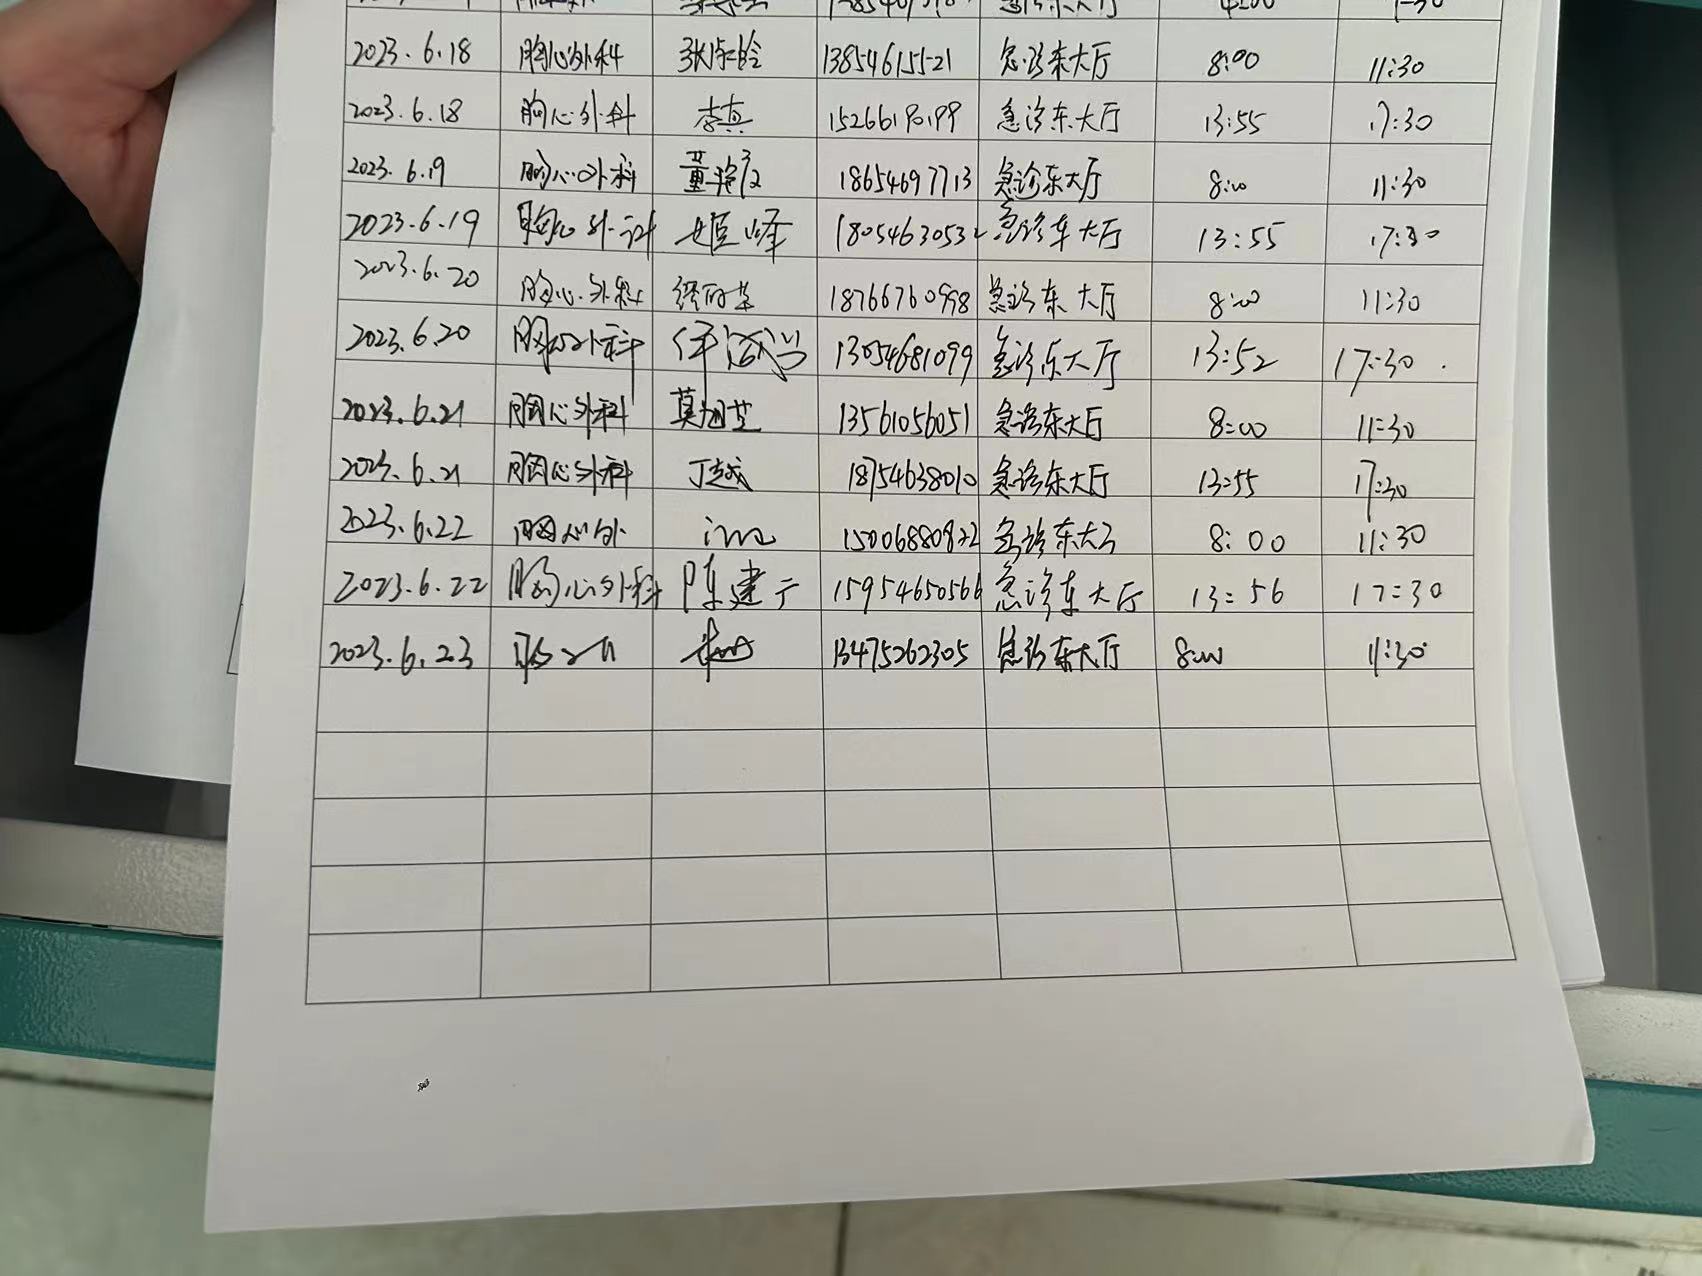 2023.6.18 胸心外科 13854615521 急诊东大厅 8:00 11:30
2023.6.18 胸心外科 李真 15266190199 急诊东大厅 13:55 17:30
2023.6.19 胸心外科 董 18654697713 急诊东大厅 8:00 11:30
2023.6.19 胸心外计 姬峰 1805463053 急诊东大厅 13:55 17:30
2023.6.20 胸心外科 18766760998 急诊东大厅 8:00 11:30
2023.6.20 胸心外科 13054681099 急诊东大厅 13:52 17:30
2023.6.21 胸心外科 13561056051 急诊东大厅 8:00 11:30
2023.6.21 胸心外科 丁越 18754638010 急诊东大厅 13:55 17:30
2023.6.22 胸心外 15006880822 急诊东大 8:00 11:30
2023.6.22 胸心外科 陈建 15954650566 急诊东大厅 13:56 17:30
2023.6.23 13475262305 急诊东大厅 8:00 11:30